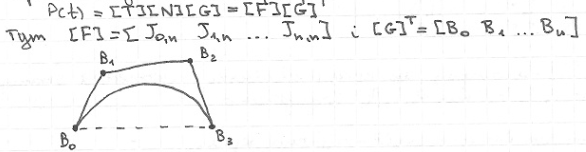 P(t) = [T][N][G] = [F][G]
Tym [F] = [J₀,ₙ J₁,ₙ ... Jₙ,ₙ] i [G]ᵀ = [B₀ B₁ ... Bₙ]
B₁ B₂
B₀ B₃